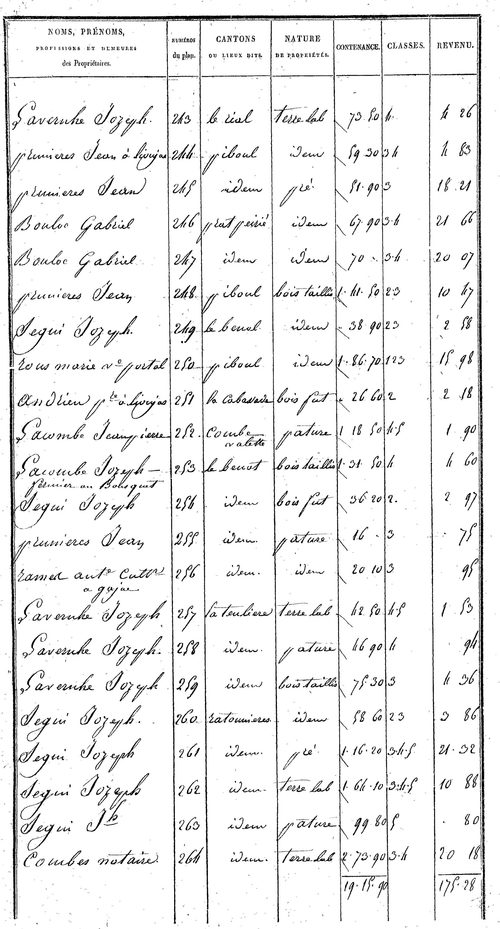 NOMS, PRÉNOMS, PROFESSIONS ET DEMEURES des Propriétaires. | NUMÉROS du plan. | CANTONS OU LIEUX DITS. | NATURE DE PROPRIÉTÉS. | CONTENANCE. | CLASSES. | REVENU.
Lavernhe Jozeph. 243 le rial terre lab 73 50 4. 4 26
prunieres Jean à livinjac 244 piboul idem 59 30 34 4 83
prunieres Jean 245 idem pré 51.90 3 18.21
Bouloc Gabriel 246 prat peirié idem 67.90 3-4 21 66
Bouloc Gabriel 247 idem idem 70 - 3-4 20 07
prunieres Jean 248 piboul bois taillis 1.41.50 23 10 47
Segui Jozeph. 249 le benot idem 38.90 23 2 58
rous marie ve portal 250 piboul idem 1.86.70 123 15 98
andrieu pre à livinjac 251 bois fut 26 60 2 2 18
Lacombe Jeanpierre 252 Combe valette pature 1 18 50 4-5 1 90
Lacombe Jozeph - 253 le benot bois taillis 1.31.50 4 4 60
fermier au Bousquet
Segui Jozeph 254 idem bois fut 36.20 2. 2 97
prunieres Jean 255 idem. pature 16 - 3 75
ramed ante 256 idem. idem 20 10 3 95
Lavernhe Jozeph 257 la teuliere terre lab 42 50 4-5 1 53
Lavernhe Jozeph. 258 idem. pature 46 90 4 94
Lavernhe Jozeph 259 idem bois taillis 75.30 3 4 36
Segui Jozeph. 260 ratounieres idem 58 60 23 3 86
Segui Jozeph 261 idem. pré 1.16.20 3.4.5 21.32
Segui Jozeph 262 idem. terre lab 1.64.10 3.4.5 10 88
Segui Jh 263 idem pature 99 80 5 . 80
Combes notaire. 264 idem. terre lab 2.73.90 3-4 20 18
19.15.90 175.28